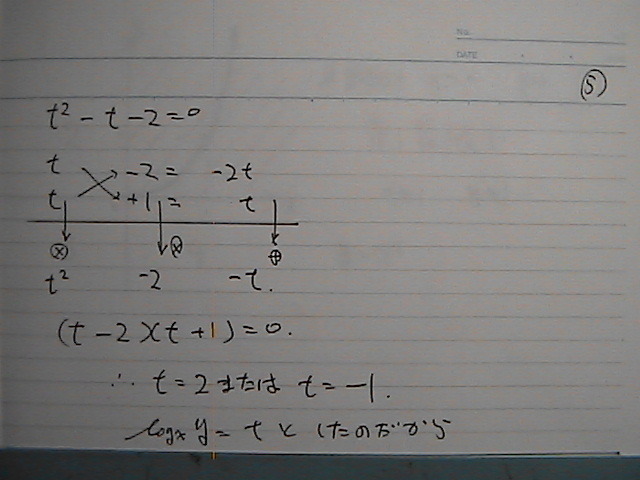 No.
DATE
⑤
t² - t - 2 = 0
t -2 = -2t
t +1 = t
⊗ ⊗ ⊕
t² -2 -t.
(t - 2)(t + 1) = 0.
∴ t = 2 または t = -1.
logₓ y = t としたのだから